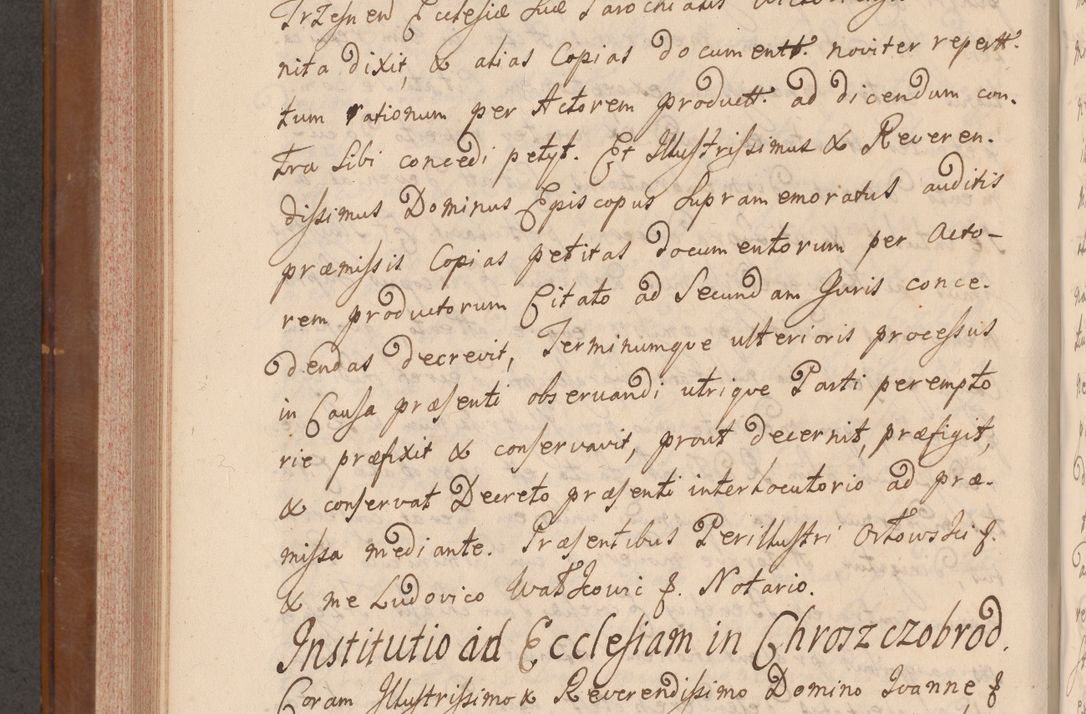 Trzesn en Ecclesiæ suæ Parochialis
nita dixit, & alias Copias documentt. noviter repertt.
tum rationum per Actorem productt. ad dicendum con-
tra sibi concedi petyt. Et Illustrissimus & Reveren-
dissimus Dominus Episcopus supramemoratus auditis
præmissis Copias petitas documentorum per Acto-
rem productorum Citato ad Secundam Juris conce-
dendas decrevit, Terminumque ulterioris processus
in Causa præsenti observandi utrique Parti perempto
rie præfixit & conservavit, prout decernit, præfigit,
& conservat Decreto præsenti interlocutorio ad præ-
missa mediante. Præsentibus Perillustri Orłowski f.
& me Ludovico Wałkowic f. Notario.
Institutio ad Ecclesiam in Chroszczobrod.
Coram Illustrissimo & Reverendissimo Domino Ioanne f